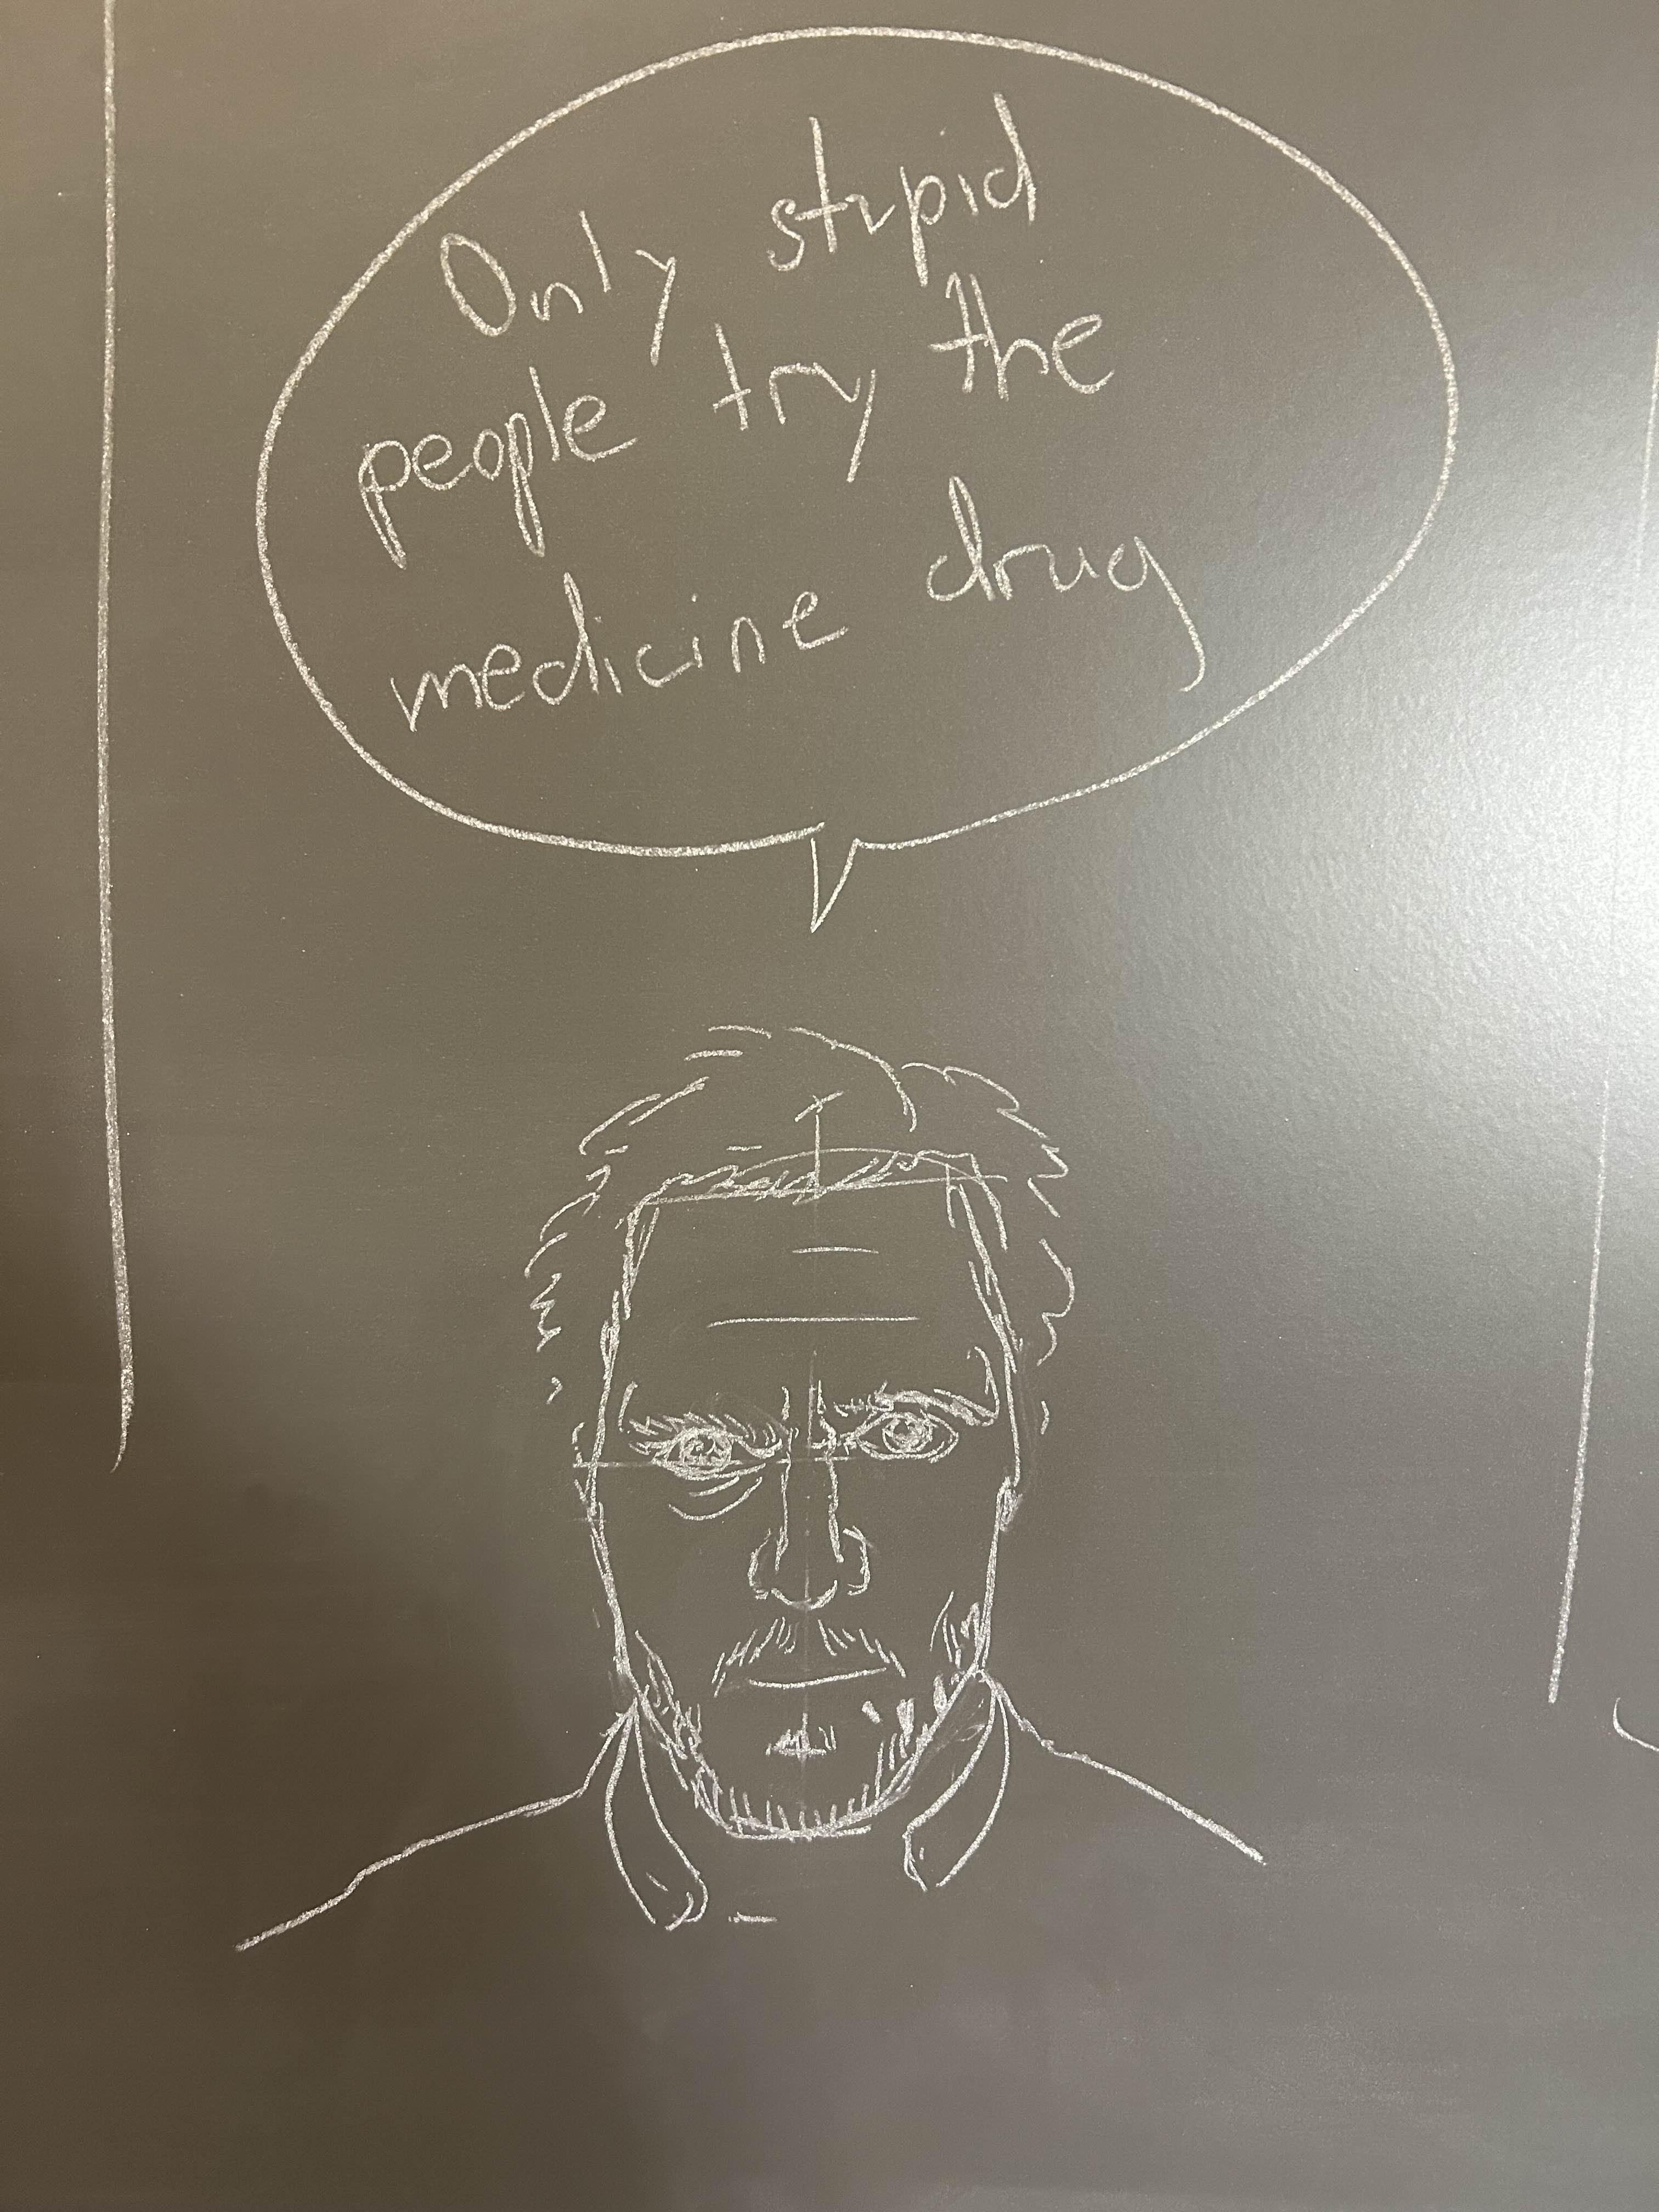 Only stupid
people try the
medicine drug